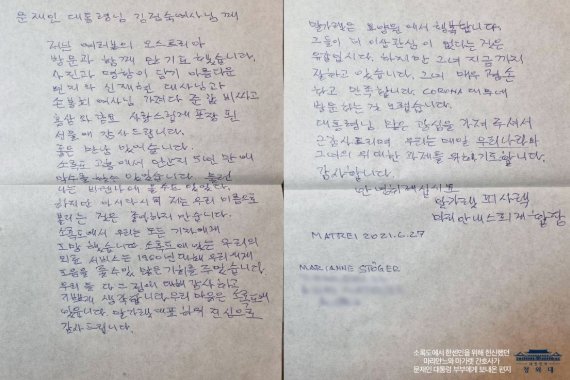 문재인 대통령님 김정숙여사님께
저는 여러분의 오스트리아
방문과 함께 만
사진과 명함이 담긴 아름다운
편지와 신재현 대사님과
여사님 가져다 준 값 비싸고
홍삼과 사랑스럽게 포장 된
선물에 감사드립니다.
좋은 만남 있었습니다.
소록도 고흥에서 만난지 5년 만에
악수를 있었습니다. 불편
나는 비엔나에 올 수도 있었다.
하지만 아시다시피 저는 우리 이름으로
불리는 것은 좋아하지 않습니다.
소록도에서 우리는 모든 기자에게
도망 했습니다. 소록도에 있는 우리의
외국 서비스는 1960년대에 우리에게
도움을 줄 수 있는 많은 기회를 주었습니다.
우리 둘 다 그 점에 대해 감사하고
기쁘게 생각합니다. 우리 마음은 소록도에
있습니다. 진심으로
감사드립니다.
말가렛은 요양원에서 행복합니다.
그들이 더 이상 관심이 없다는 것은
유감입니다. 하지만 그녀 지금까지
잘하고 있습니다. 그녀 매우 겸손
하고 만족합니다. CORONA 때문에
방문하는
대통령님, 많은 관심을 가져 주셔서
감사드리며, 우리는 매일 우리나라와
그녀의 위대한 과제를 위해 기도합니다.
감사합니다.
안녕히계십시오
말가렛 피사렉
마리안네 스퇴거
MATREI 2021.6.27
MARIANNE STÖGER
소록도에서 한센인을 위해 헌신했던
마리안느와 마가렛 간호사가
문재인 대통령 부부에게 보내온 편지
대한민국
청와대